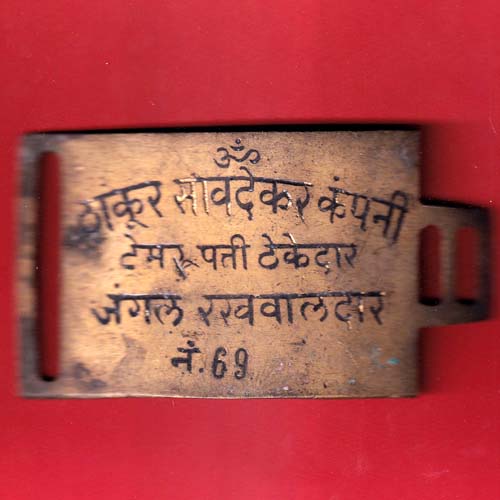 ॐ
ठाकूर सावदेकर कंपनी
टेमरू पत्ती ठेकेदार
जंगल रखवालदार
नं. 69